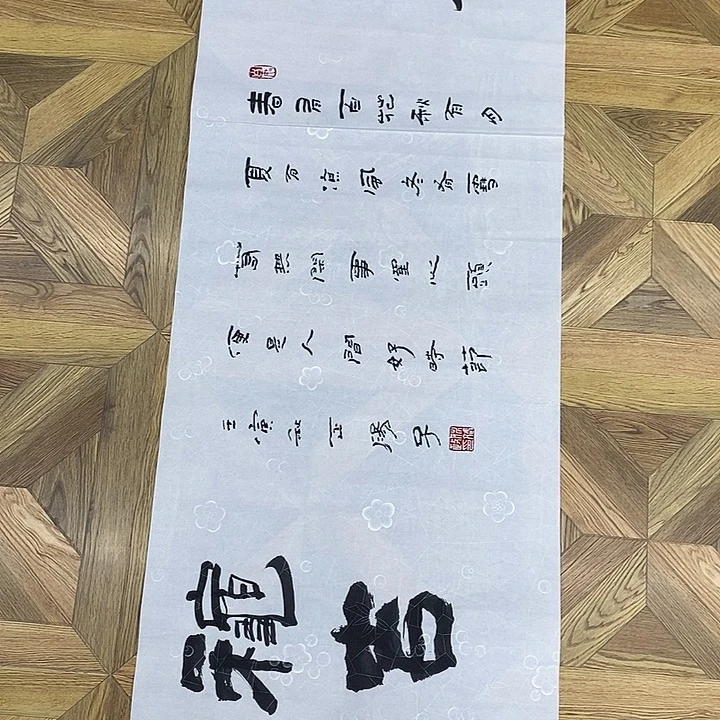 春有百花秋有月
夏有涼風冬有雪
若無閑事罣心頭
便是人間好時節
壬寅秋